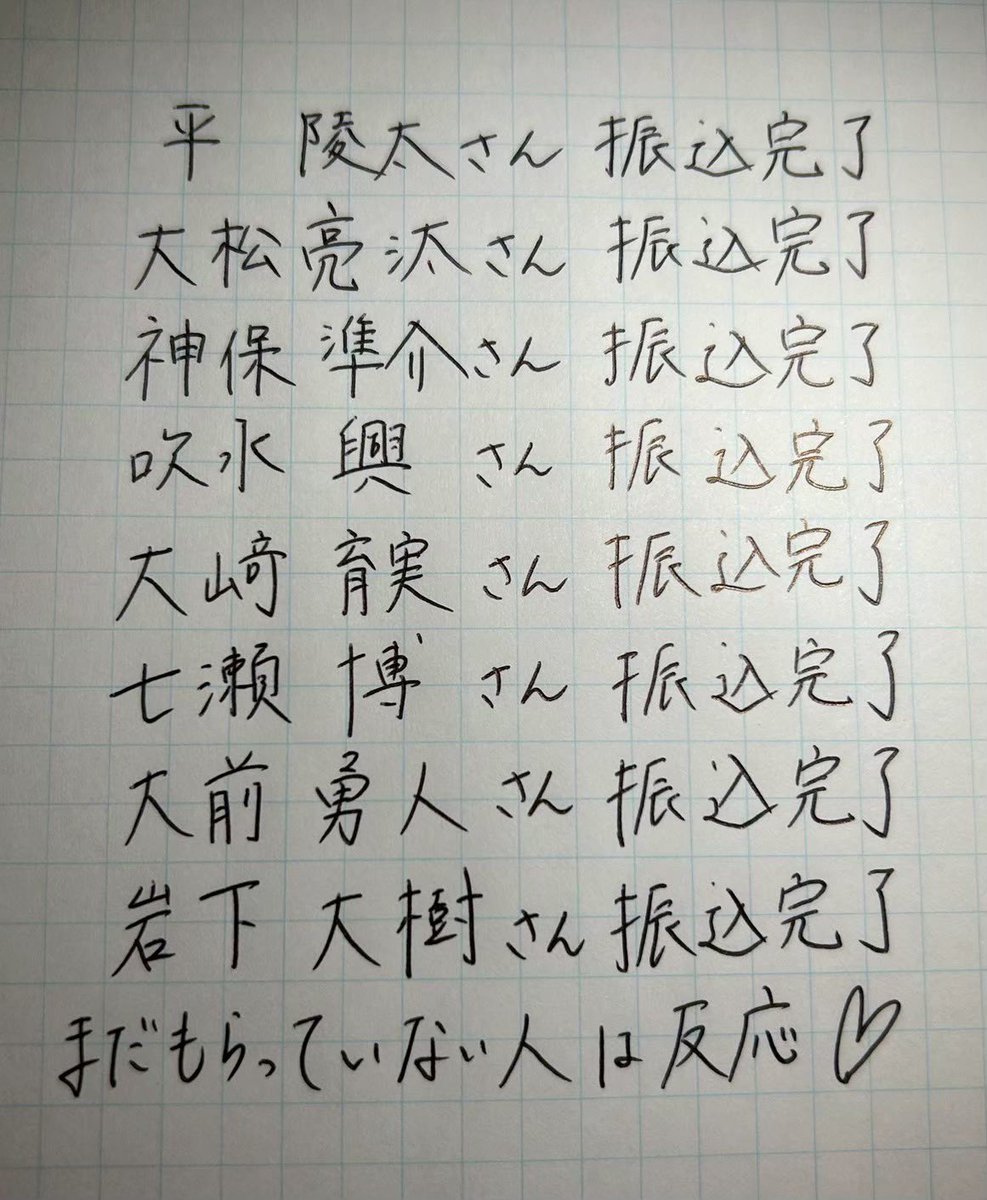 平 陵太さん 振込完了
大松亮汰さん 振込完了
神保 準介さん 振込完了
吹水 興 さん 振込完了
大﨑 育実 さん 振込完了
七瀬 博 さん 振込完了
大前 勇人 さん 振込完了
岩下 大樹さん 振込完了
まだもらっていない人は反応♡